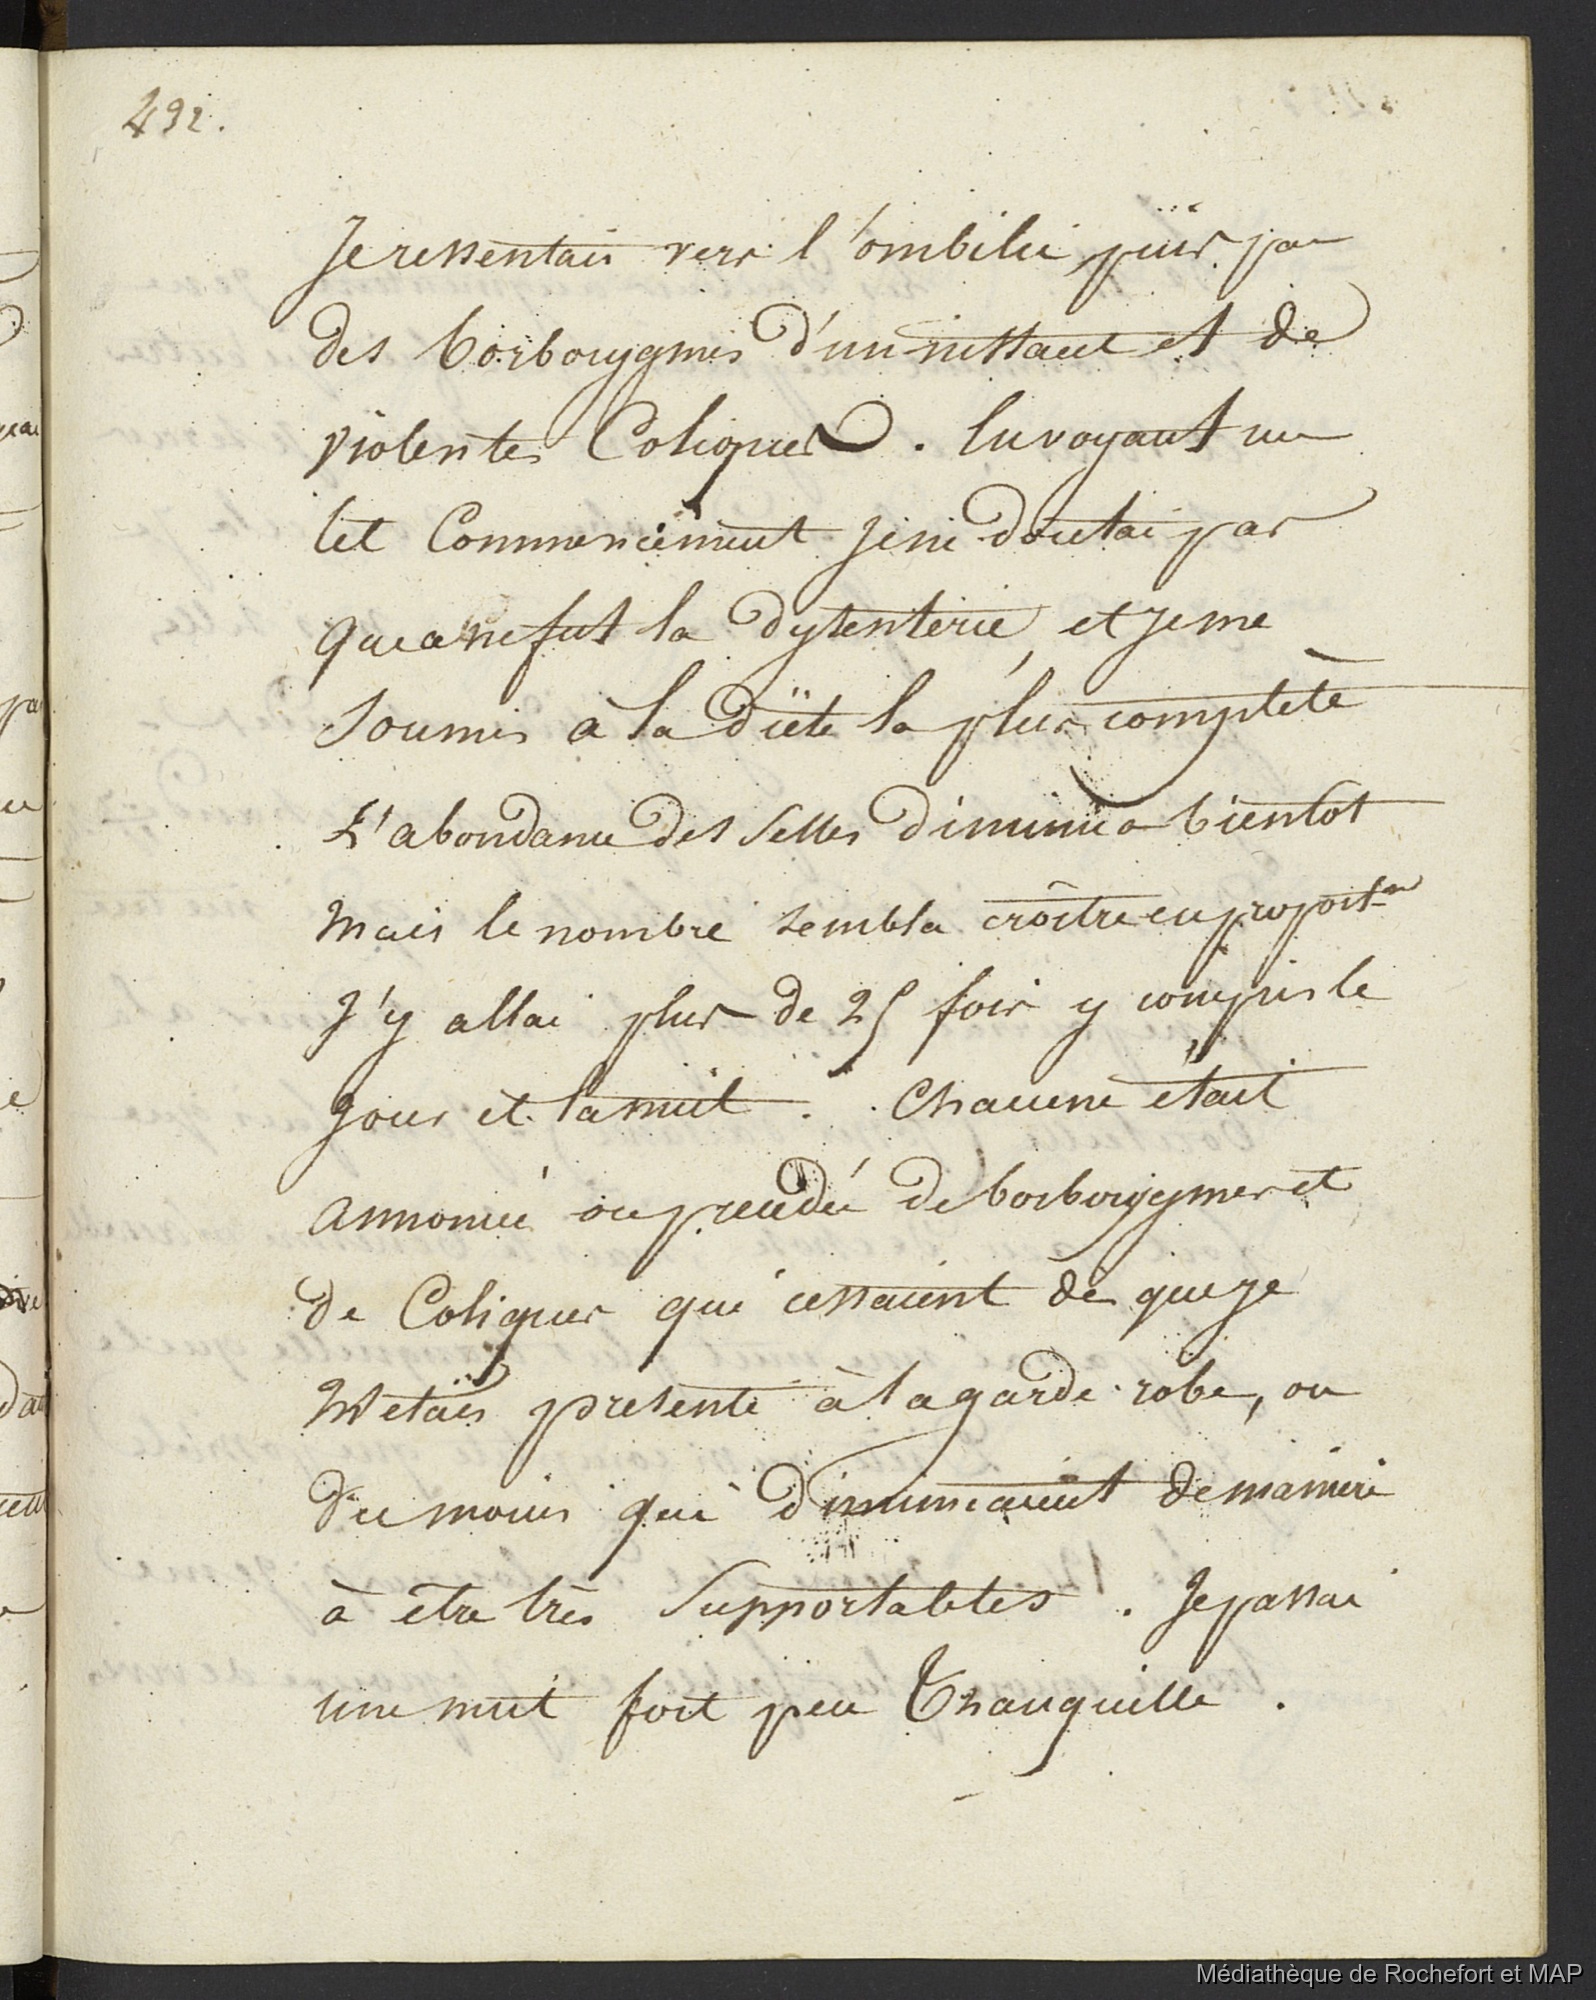 492.
Je ressentais vers l'ombilic, puis par
des borborygmes d'un instant et de
violentes Coliques. En voyant un
tel Commencement je ne doutai pas
que ce ne fut la dyssenterie, et je me
soumis à la diëte la plus complète
L'abondance des selles diminua bientot
mais le nombre sembla croître en proport.on
J'y allai plus de 25 fois y compris le
jour et la nuit. Chacune était
annoncée ou précédée de borborygmes et
de Coliques qui cessaient dès que je
m'etais presenté à la garde-robe, ou
du moins qui diminuaient de manière
à être très Supportables. Je passai
une nuit fort peu Tranquille.
Médiathèque de Rochefort et MAP